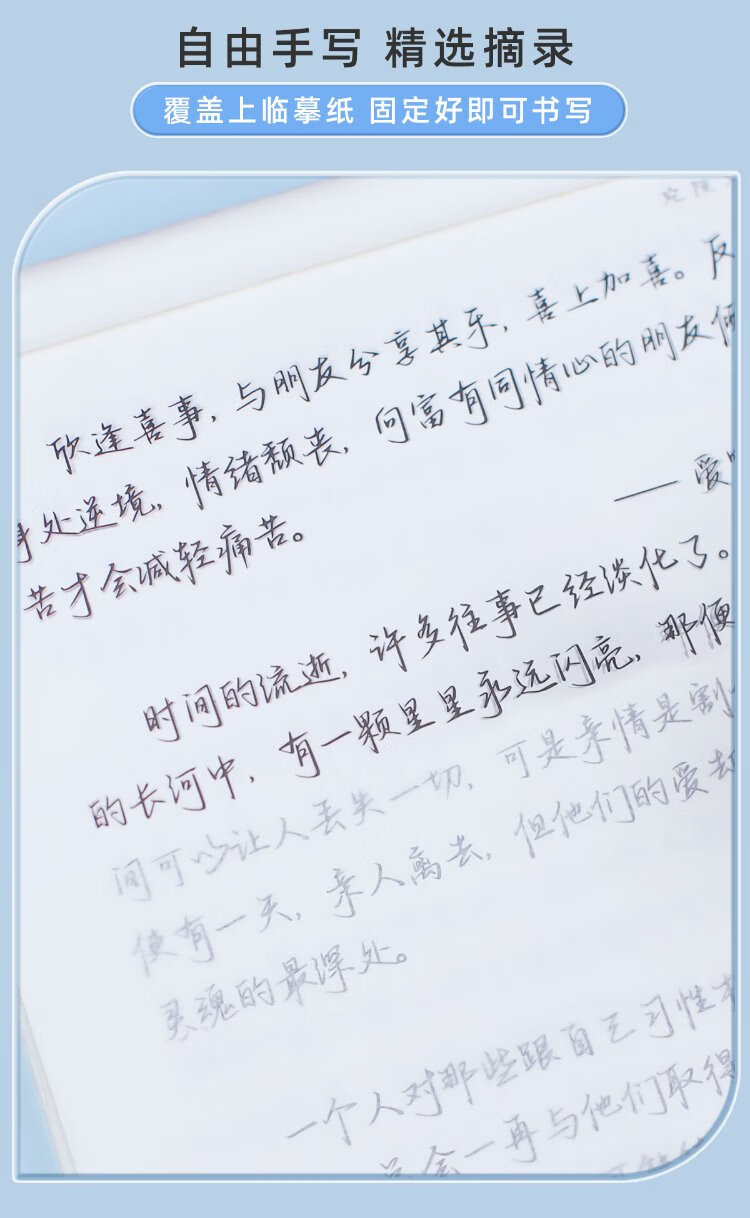 自由手写 精选摘录
覆盖上临摹纸 固定好即可书写
欣逢喜事，与朋友分享其乐，喜上加喜。反
身处逆境，情绪颓丧，向富有同情心的朋友倾
苦才会减轻痛苦。
—— 爱
时间的流逝，许多往事已经淡化了。
的长河中，有一颗星星永远闪亮，那便
间可以让人丢失一切，可是亲情是割
便有一天，亲人离去，但他们的爱却
灵魂的最深处。
一个人对那些跟自己习性
会一再与他们取得